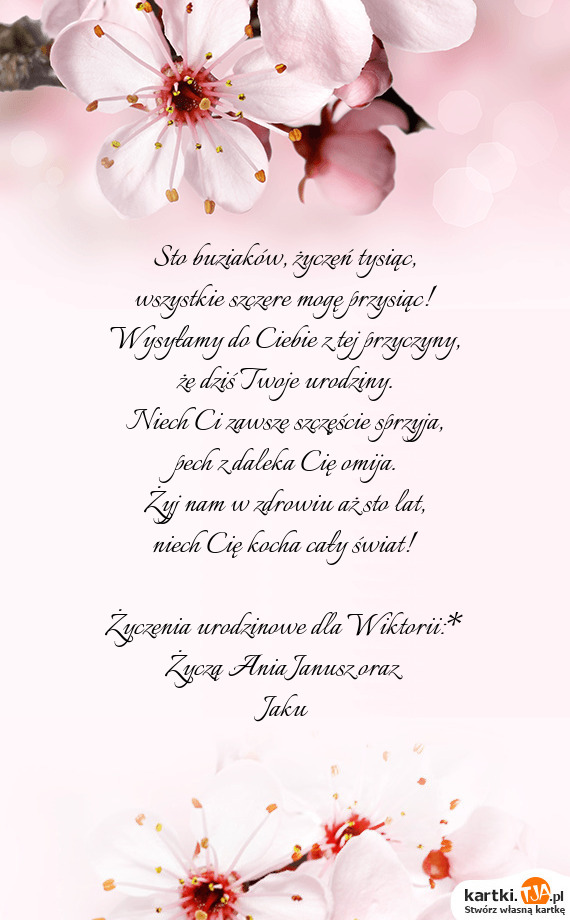 Sto buziaków, życzeń tysiąc,
wszystkie szczere mogę przysiąc!
Wysyłamy do Ciebie z tej przyczyny,
że dziś Twoje urodziny.
Niech Ci zawsze szczęście sprzyja,
pech z daleka Cię omija.
Żyj nam w zdrowiu aż sto lat,
niech Cię kocha cały świat!
Życzenia urodzinowe dla Wiktorii:*
Życzą Ania Janusz oraz
Jaku
kartki.TJA.pl
Stwórz własną kartkę